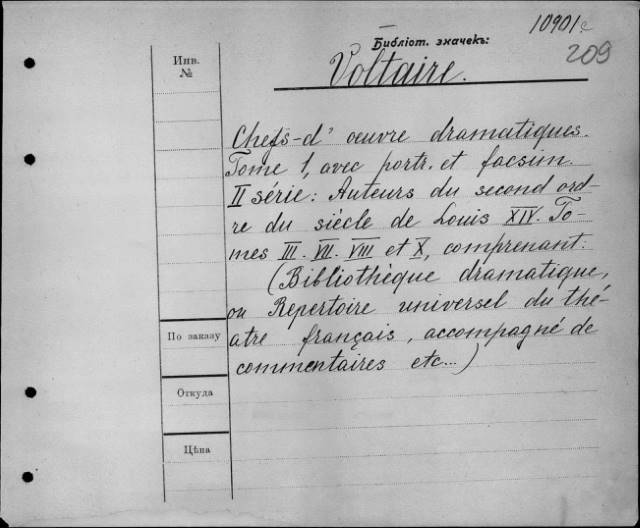 10901c
209
Библіот. значекъ:
Voltaire.
Инв.
№
Chefs-d' oeuvre dramatiques.
Tome 1, avec portr. et facsim.
II série: Auteurs du second ord-
re du siècle de Louis XIV. To-
mes III. VII. VIII et X, comprenant:
(Bibliothèque dramatique,
ou Repertoire universel du thé-
âtre français, accompagné de
commentaires etc...)
По заказу
Откуда
Цѣна